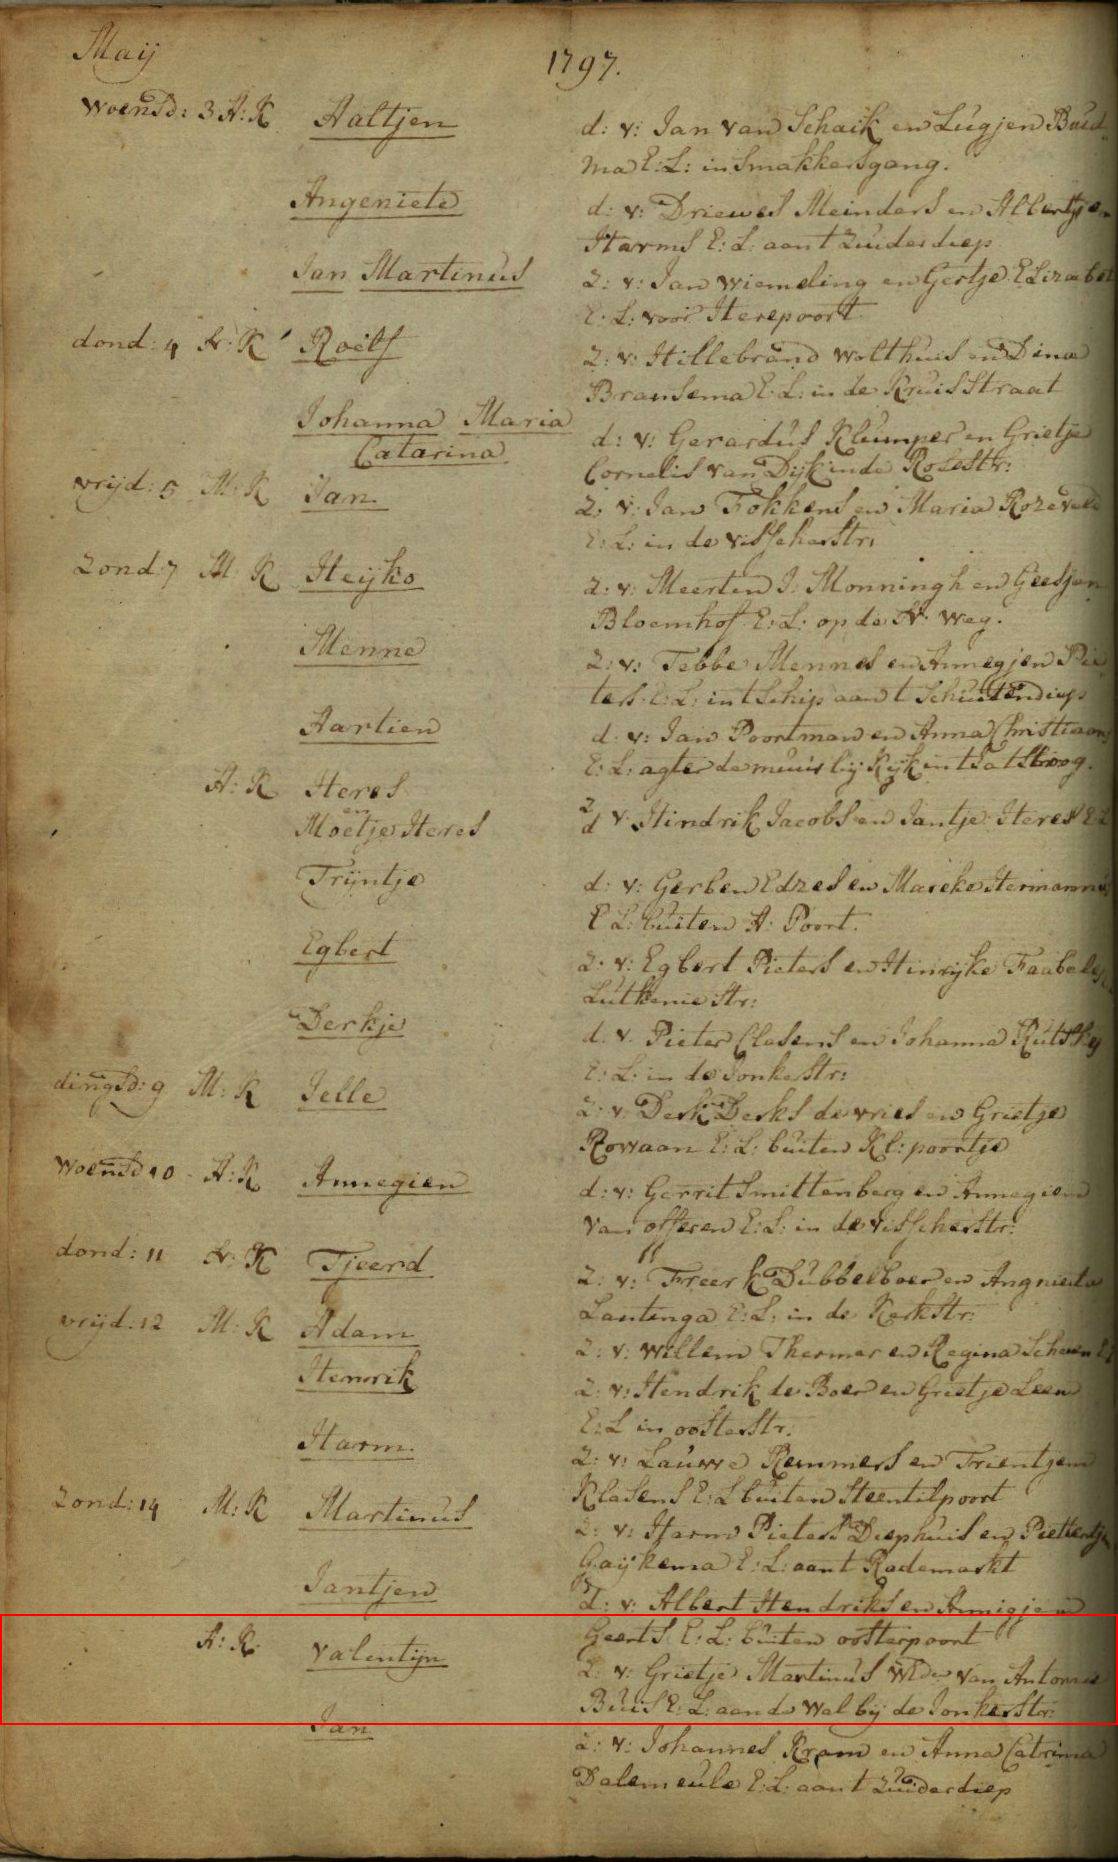 Maij
1797.
Woensd: 3 A: K Aaltjen d: v: Jan van Schaik en Lugjen Buid
ma E: L: in Smakkersgang.
Angeniete d: v: Driewes Meinders en Albertje
Harms E: L: aant Zuiderdiep
Jan Martinus Z: v: Jan Wiemeling en Gertje Elizabet
E: L: voor Herepoort
dond: 4 N: K Roelf Z: v: Hillebrand Wolthuis en Dina
Bransema E: L: in de Kruisstraat
Johanna Maria
Catarina d: v: Gerardus Klumper en Grietje
Cornelis van Dijk in de Rosestr:
vrijd: 5 M: K Jan Z: v: Jan Fokkens en Maria Rozeveld
E: L: in de Visscherstr:
Zond: 7 M: K Heijko Z: v: Meerten J: Monningh en Geesjen
Bloemhof E: L: op de N: Weg.
Menne Z: v: Tebbe Mennes en Annegjen Pie
ters E: L: int Schip aant Schuitendiep
Aartien d: v: Jan Poortman en Anna Christiaans
E: L: agter de muur bij Kijk int Jatstroog.
A: K Heres
en
Moetje Heres
Z
d v: Hindrik Jacobs en Jantje Heres E: L
Trijntje d: v: Gerben Edzes en Mareke Hermannus
E L: buiten A: Poort.
Egbert Z: v: Egbert Pieters en Hinrijke Faabeles
Lutkenie Str:
Derkje d: v: Pieter Clasens en Johanna Rutskij
E: L: in de Jonkerstr:
dingsd: 9 M: K Jelle Z: v: Derk Derks de Vries en Grietje
Rowaan E: L: buiten Kl: poortje
Woensd 10 A: K Annegien d: v: Gerrit Smittenberg en Annegien
van offeren E: L: in de Visscherstr:
dond: 11 N: K Tjeerd Z: v: Freerk Dubbelboer en Angnieta
Lantinga E: L: in de Kerkstr:
vrijd: 12 M: K Adam Z: v: Willem Thermer en Regina E L
Henrik Z: v: Hendrik de Boer en Grietje Leen
E: L in oosterstr:
Harm Z: v: Lauwe Remmers en Trientjen
Klasens E: L buiten Steentilpoort
Zond: 14 M: K Martinus Z: v: Harm Pieters Diephuis en Pietertje
Gaijkema E: L: aant Rademarkt
Jantjen d: v: Albert Hendriks en Annigjen
Geerts E: L: buiten oosterpoort
A: K: Valentijn Z: v: Grietje Martinus Wed: van Antonie
Buis E: L: aan de Wal bij de Jonkerstr:
Jan Z: v: Johannes Kram en Anna Catrina
Dalemeule E: L: aant Zuiderdiep